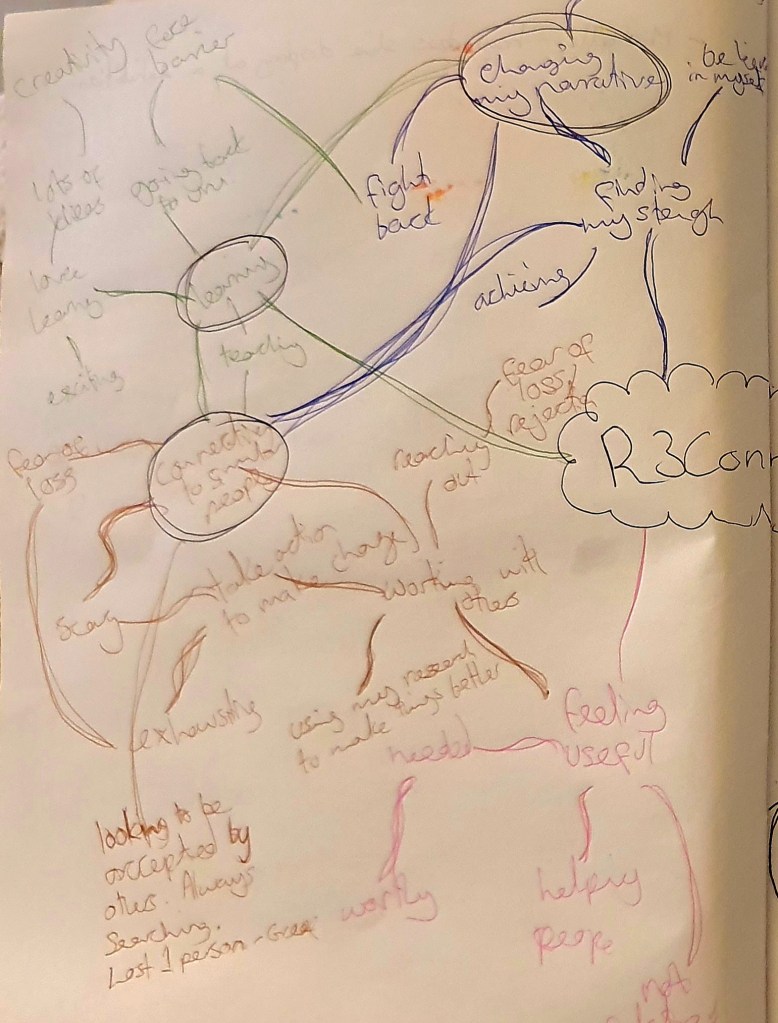 creativity
face
barrier
changing
my narrative
believe
in myself
lots of
ideas
going back
to uni
fight
back
finding
my stengh
love
learng
learning
achieving
exciting
teaching
fear of
loss/
rejection
fear of
loss
connecting
to similar
people
reaching
out
R3Conn
scary
take action
to make changes
working with
others
exhausting
using my research
to make things better
needed
feeling
useful
looking to be
accepted by
others. Always
Searching.
Lost 1 person -
worthy
helping
people
not